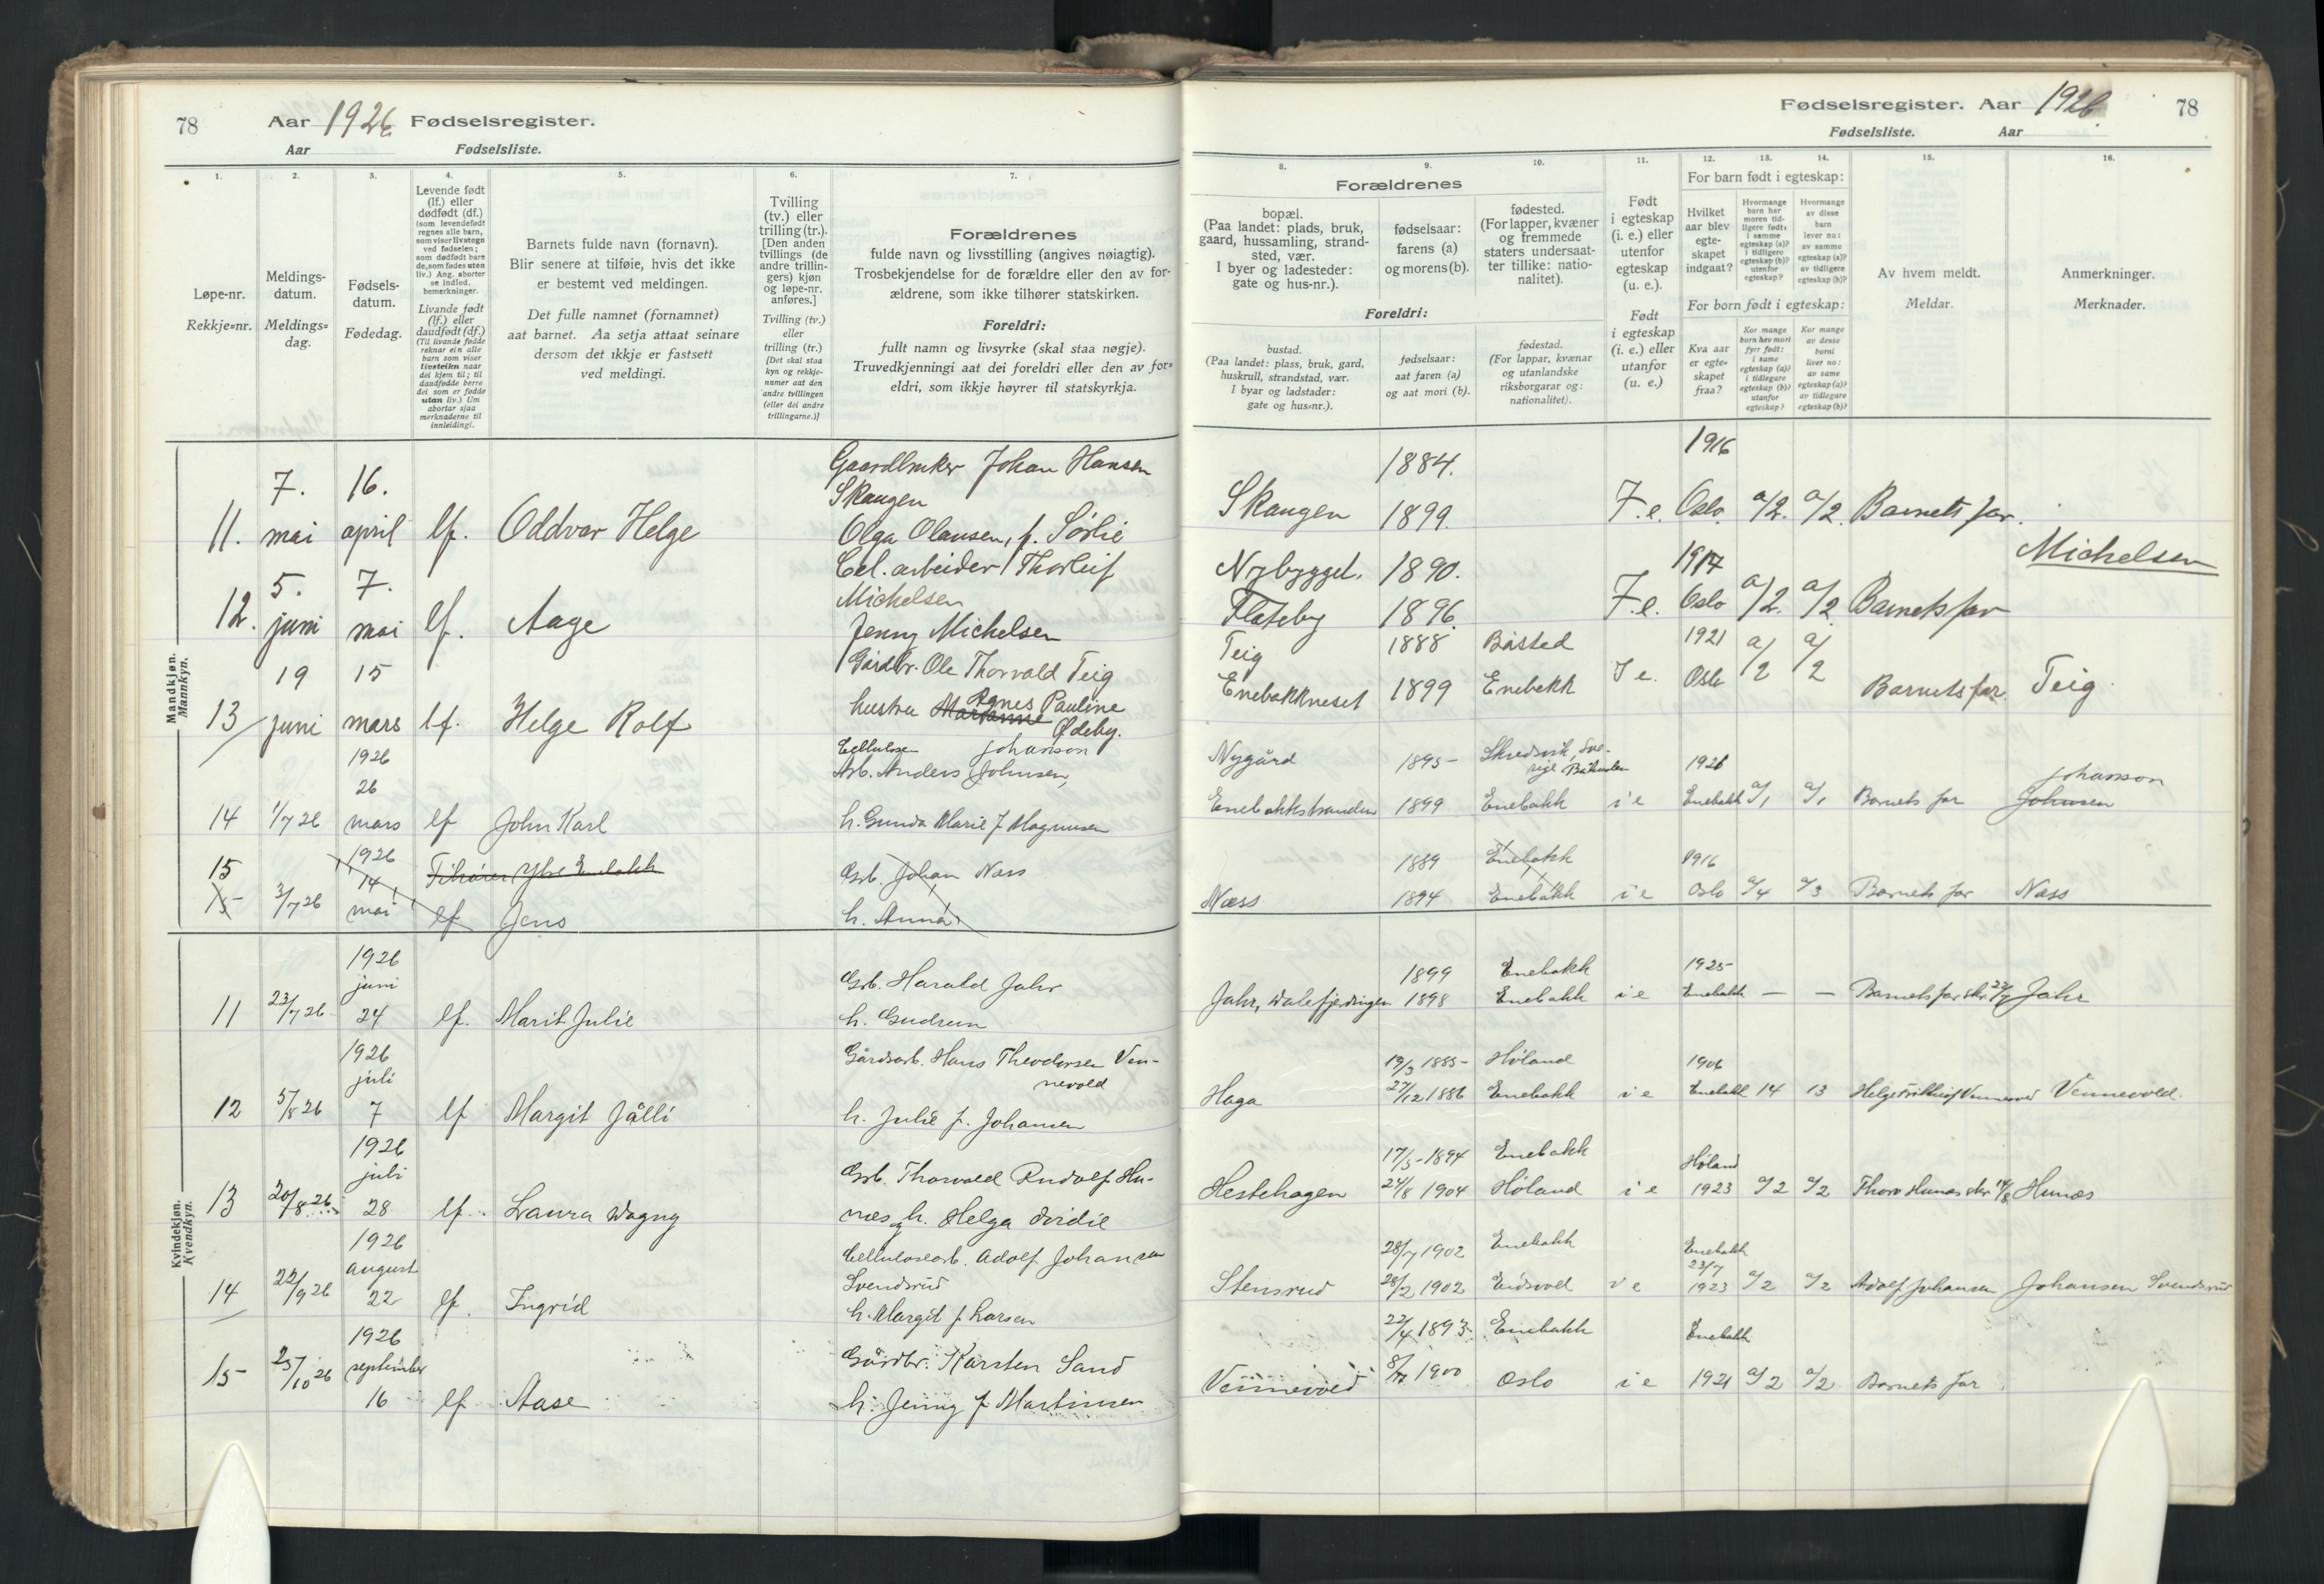 78
Aar 1926 Fødselsregister.
Aar Fødselsliste.
1. 2. 3. 4. 5. 6. 7.
Løpe-nr.
Rekkje=nr.
Meldings-
datum.
Meldings=
dag.
Fødsels-
datum.
Fødedag.
Levende født
(lf.) eller
dødfødt (df.)
(som levendefødt
regnes alle barn,
som viser livstegn
ved fødselen;
som dødfødt bare
de, som fødes uten
liv.) Ang. aborter
se indled.
bemerkninger.
Livande født
(lf.) eller
daudfødt (df.)
(Til livande fødde
reknar ein alle
barn som viser
livsteikn naar
dei kjem til; til
daudfødde berre
dei som er fødde
utan liv.) Um
abortar sjaa
merknaderne til
innleidingi.
Barnets fulde navn (fornavn).
Blir senere at tilføie, hvis det ikke
er bestemt ved meldingen.
Det fulle namnet (fornamnet)
aat barnet. Aa setja attaat seinare
dersom det ikkje er fastsett
ved meldingi.
Tvilling
(tv.) eller
trilling (tr.).
[Den anden
tvillings (de
andre trillin-
gers) kjøn
og løpe-nr.
anføres.]
Tvilling (tv.)
eller
trilling (tr.)
[Det skal staa
kyn og rekkje-
numer aat den
andre tvillingen
(eller dei andre
trillingarne.)]
Forældrenes
fulde navn og livsstilling (angives nøiagtig).
Trosbekjendelse for de forældre eller den av for-
ældrene, som ikke tilhører statskirken.
Foreldri:
fullt namn og livsyrke (skal staa nøgje).
Truvedkjenningi aat dei foreldri eller den av for=
eldri, som ikkje høyrer til statskyrkja.
Mandkjøn.
Mannkyn.
Gaardbruker Johan Hansen
7. 16. Skaugen
11. mai april lf. Oddvar Helge Olga Olausen, f. Sørlie
Cel. arbeider Thorleif
5. 7. Michelsen
12. juni mai lf. Aage Jenny Michelsen
19 15 Gårdbr. Ole Thorvald Teig
13 juni mars lf. Helge Rolf hustru Marianne Agnes Pauline
Ødeby.
1926 Cellulose Johanson
26 Arb. Anders Johnsen,
14 1/7 26 mars lf John Karl h. Gunda Marie f Magnusen
1926 Tilhører Ytre Enebakk
15 14 Grb. Johan Næss
15 3/7 26 mai lf Jens h. Anna
Kvindekjøn.
Kvendkyn.
1926
juni Grb. Harald Jahr
11 23/7 26 24 lf. Marit Julie h. Gudrun
1926 Gårdsarb. Hans Theodorsen Ven-
juli nevold
12 5/8 26 7 lf Margit Jålli h. Julie f. Johansen
1926
juli Grb. Thorvald Rudolf Hu-
13 20/8 26 28 lf. Laura Dagny næs h. Helga Dridie
1926 Cellulosearb. Adolf Johansen
august Svendsrud
14 22/9 26 22 lf. Ingrid h. Margit f Larsen
1926
september Gårdbr. Karsten Sand
15 25/10 26 16 lf. Aase h. Jenny f Martinsen
Fødselsregister. Aar 1926 78
Fødselsliste. Aar
8. 9. 10. 11. 12. 13. 14. 15. 16.
Forældrenes
bopæl.
(Paa landet: plads, bruk,
gaard, hussamling, strand-
sted, vær.
I byer og ladesteder:
gate og hus-nr.).
fødselsaar:
farens (a)
og morens (b).
fødested.
(For lapper, kvæner
og fremmede
staters undersaat-
ter tillike: natio-
nalitet).
Foreldri:
bustad.
(Paa landet: plass, bruk, gard,
huskrull, strandstad, vær.
I byar og ladstader:
gate og hus=nr.).
fødselsaar:
aat faren (a)
og aat mori (b).
fødestad.
(For lappar, kvænar
og utanlandske
riksborgarar og:
nationalitet).
Født
i egteskap
(i. e.) eller
utenfor
egteskap
(u. e.).
Født
i egteskap
(i. e.) eller
utanfor
(u. e.)
For barn født i egteskap:
Hvilket
aar blev
egte-
skapet
indgaat?
Hvormange
barn har
moren tid-
ligere født:
i samme
egteskap (a)?
i tidligere
egteskap (b)?
utenfor
egteskap?
Hvormange
av disse
barn
lever nu:
av samme
egteskap (a)?
av tidligere
egteskap (b)?
For born født i egteskap:
Kva aar
er egte=
skapet
fraa?
Kor mange
born hev mori
fyrr født:
i same
egteskap (a)?
i tidlegare
egteskap (b)?
utanfor
egteskap?
Kor mange
av desse
borni
liver no:
av same
egteskap (a)?
av tidlegare
egteskap (b)?
Av hvem meldt.
Meldar.
Anmerkninger.
Merknader.
1884. 1916
Skaugen 1899. F.e. Oslo a/2. a/2. Barnets far.
Nybygget. 1890. 1917 Michelsen
Flateby 1896. F.e. Oslo a/2. a/2 Barnets far
Teig 1888 Båsted 1921
Enebakkneset 1899 Enebakk I e. Oslo a/2 a/2 Barnets far. Teig
Nygård 1895 Skredsvik, Sve-
rige Båhuslen 1926 Johanson
Enebakkstranden 1899 Enebakk i e Enebakk a/1 a/1 Barnets far Johnsen
1889 Enebakk 1916
Næss 1894 Enebakk i e Oslo a/4 a/3 Barnets far Næss
1899 Enebakk 1925
Jahr, Dalefjerdingen 1898 Enebakk i e Enebakk — — Barnets far skr. 22/7 Jahr
19/3 1885 Høland 1906
Haga 27/12 1886 Enebakk i e Enebakk 14 13 Helge Vennevold Vennevold.
17/5 1894 Enebakk Høland
Hestehagen 24/8 1904 Høland i e 1923 a/2 a/2 Thorv Hunæs skr 19/8 Hunæs
28/7 1902 Enebakk Enebakk
23/7
Stensrud 28/2 1902 Eidsvold i e 1923 a/2 a/2 Adolf Johansen Johansen Svendsrud
22/4 1893 Enebakk Enebakk
Vennevold 1900 Oslo i e 1921 a/2 a/2 Barnets far